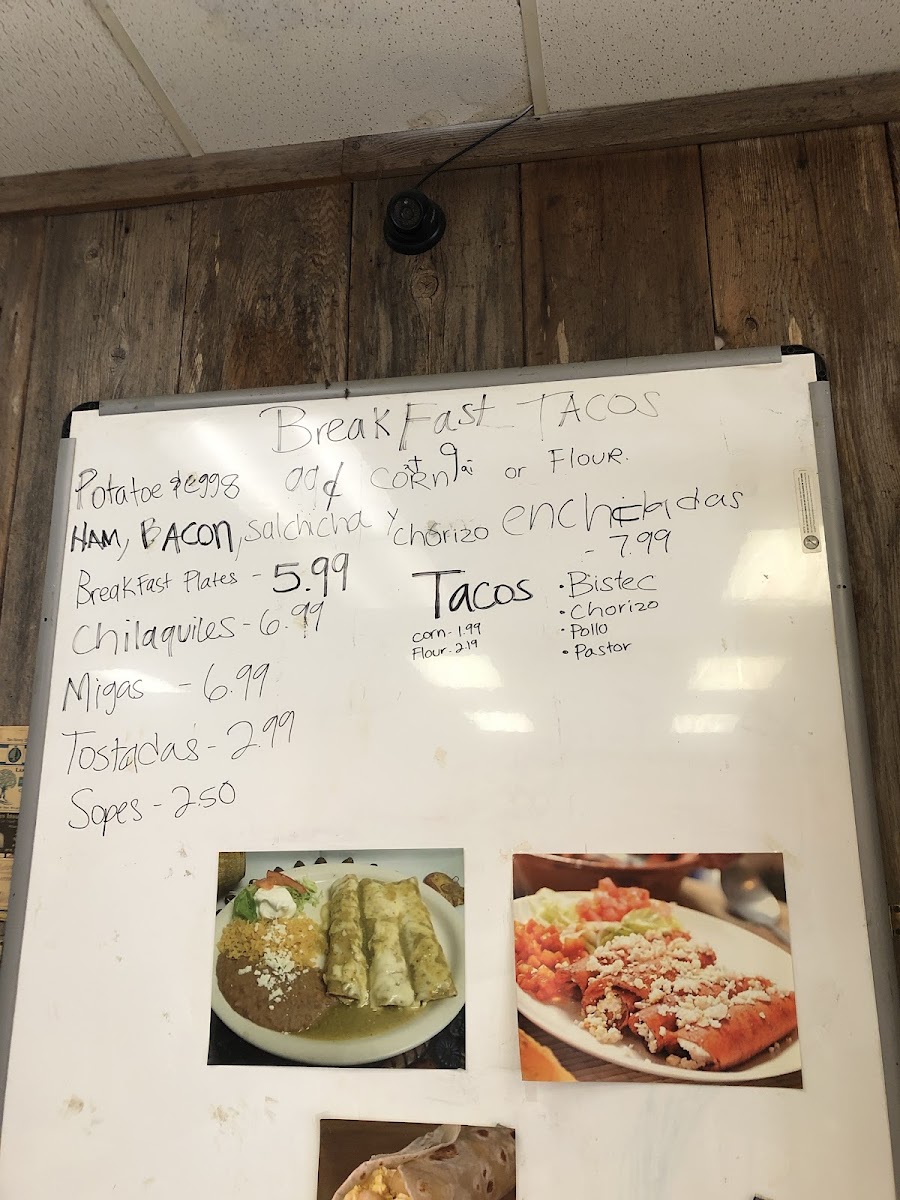 BreakFast TACOS
Potatoe & eggs 99¢ CORN or Flour.
HAM, BACON, Salchicha y chorizo
enchiladas
- 7.99
BreakFast Plates - 5.99
Chilaquiles - 6.99
Migas - 6.99
Tostadas - 2.99
Sopes - 2.50
Tacos
corn - 1.99
Flour - 2.19
• Bistec
• Chorizo
• Pollo
• Pastor